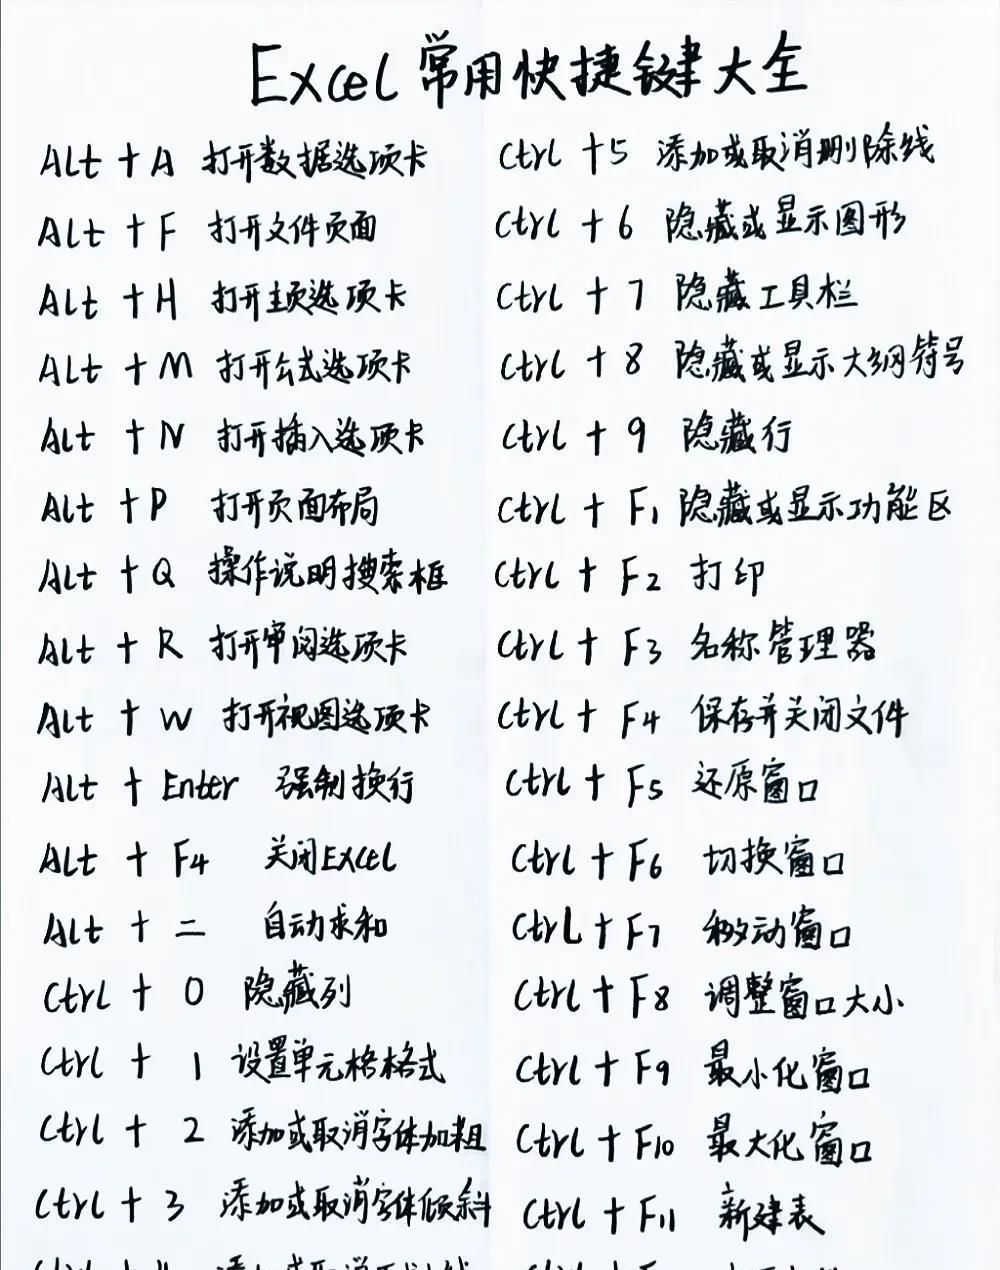 Excel常用快捷键大全
Alt + A 打开数据选项卡
Alt + F 打开文件页面
Alt + H 打开主页选项卡
Alt + M 打开公式选项卡
Alt + N 打开插入选项卡
Alt + P 打开页面布局
Alt + Q 操作说明搜索框
Alt + R 打开审阅选项卡
Alt + W 打开视图选项卡
Alt + Enter 强制换行
Alt + F4 关闭Excel
Alt + = 自动求和
Ctrl + 0 隐藏列
Ctrl + 1 设置单元格格式
Ctrl + 2 添加或取消字体加粗
Ctrl + 3 添加或取消字体倾斜
Ctrl + 5 添加或取消删除线
Ctrl + 6 隐藏或显示图形
Ctrl + 7 隐藏工具栏
Ctrl + 8 隐藏或显示大纲符号
Ctrl + 9 隐藏行
Ctrl + F1 隐藏或显示功能区
Ctrl + F2 打印
Ctrl + F3 名称管理器
Ctrl + F4 保存并关闭文件
Ctrl + F5 还原窗口
Ctrl + F6 切换窗口
Ctrl + F7 移动窗口
Ctrl + F8 调整窗口大小
Ctrl + F9 最小化窗口
Ctrl + F10 最大化窗口
Ctrl + F11 新建表